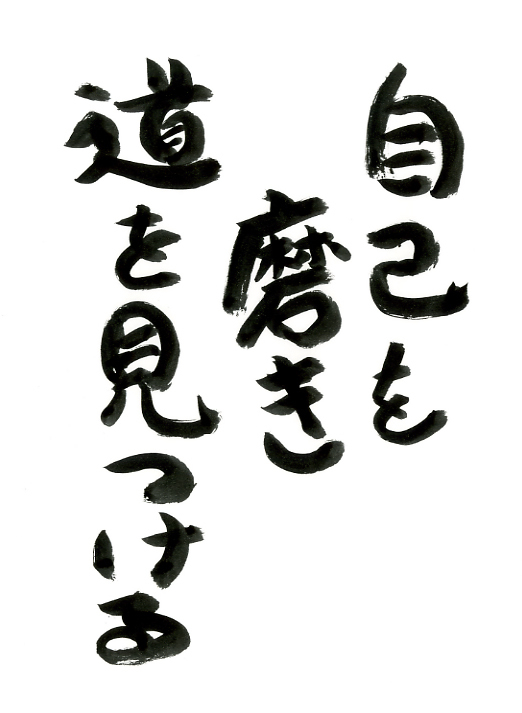 自己を
磨き
道を見つける